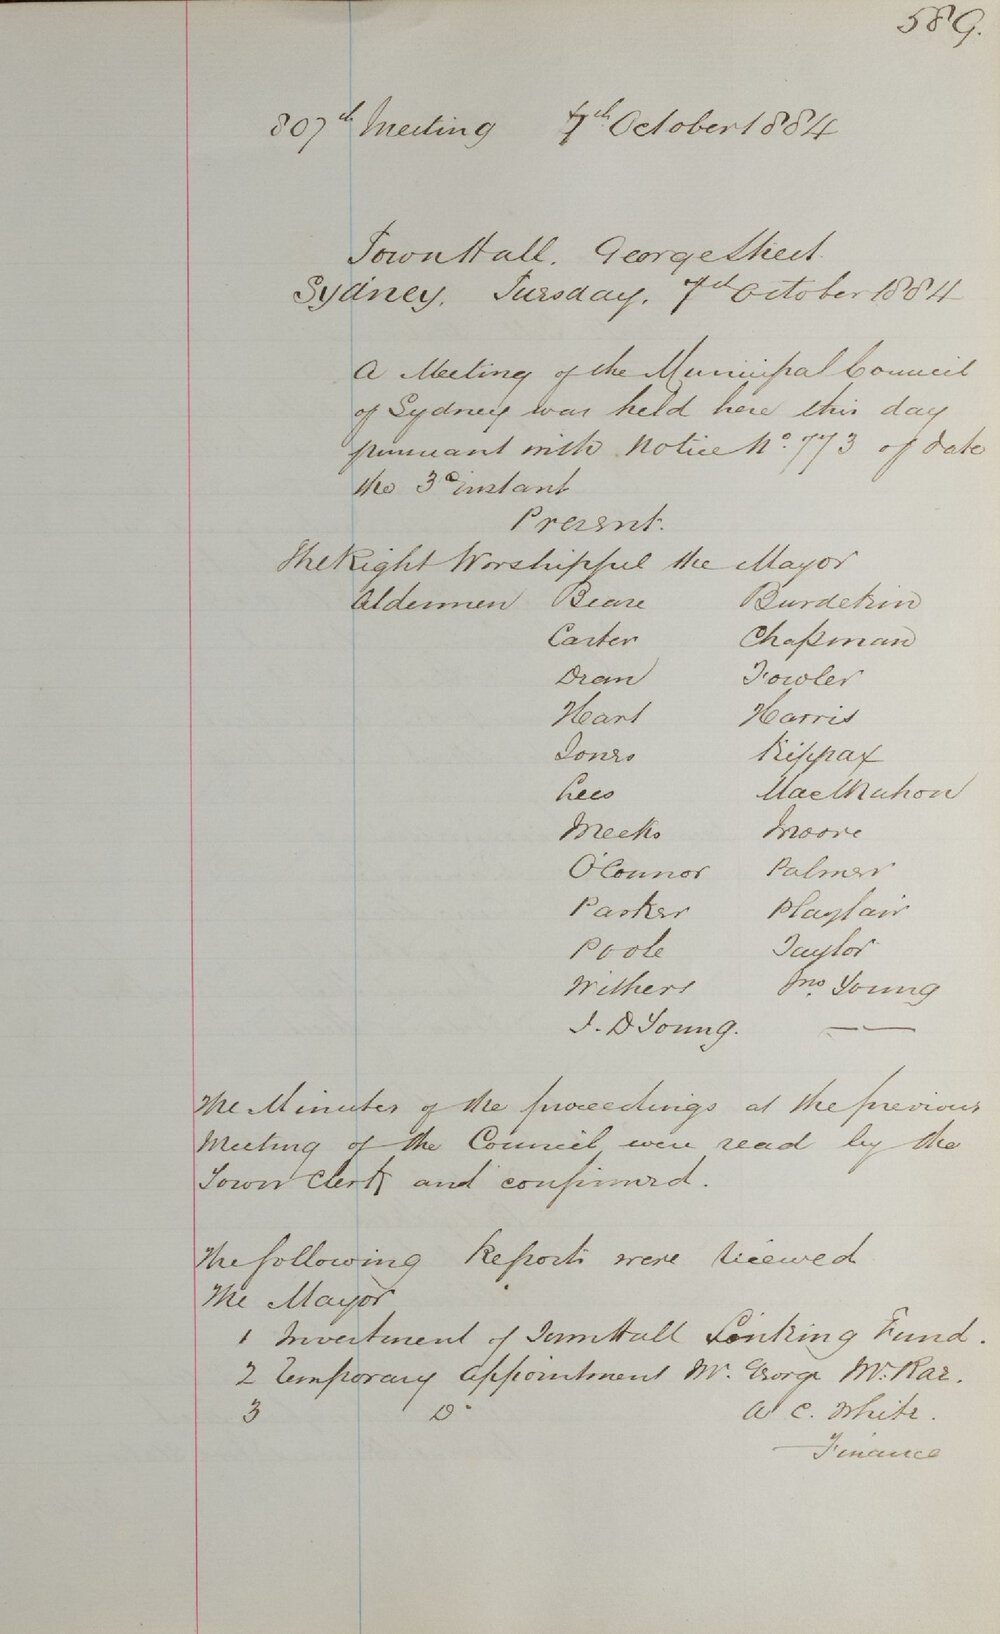 589.
807th Meeting 7th October 1884
Town Hall. George Street.
Sydney. Tuesday. 7th October 1884
A Meeting of the Municipal Council
of Sydney was held here this day
pursuant with Notice No. 773 of date
the 3d instant
Present.
The Right Worshipful the Mayor
Aldermen Beare Burdekin
Carter Chapman
Dean Fowler
Hart Harris
Jones Kippax
Lees MacMahon
Meeks Moore
O'Connor Palmer
Parker Playfair
Poole Taylor
Withers Jno. Young
J. D Young.
The Minutes of the proceedings at the previous
Meeting of the Council were read by the
Town Clerk and confirmed.
The following Reports were viewed
The Mayor
1 Investment of Town Hall Sinking Fund.
2 Temporary appointment Mr. George McRae.
3 Do. A C. White.
Finance